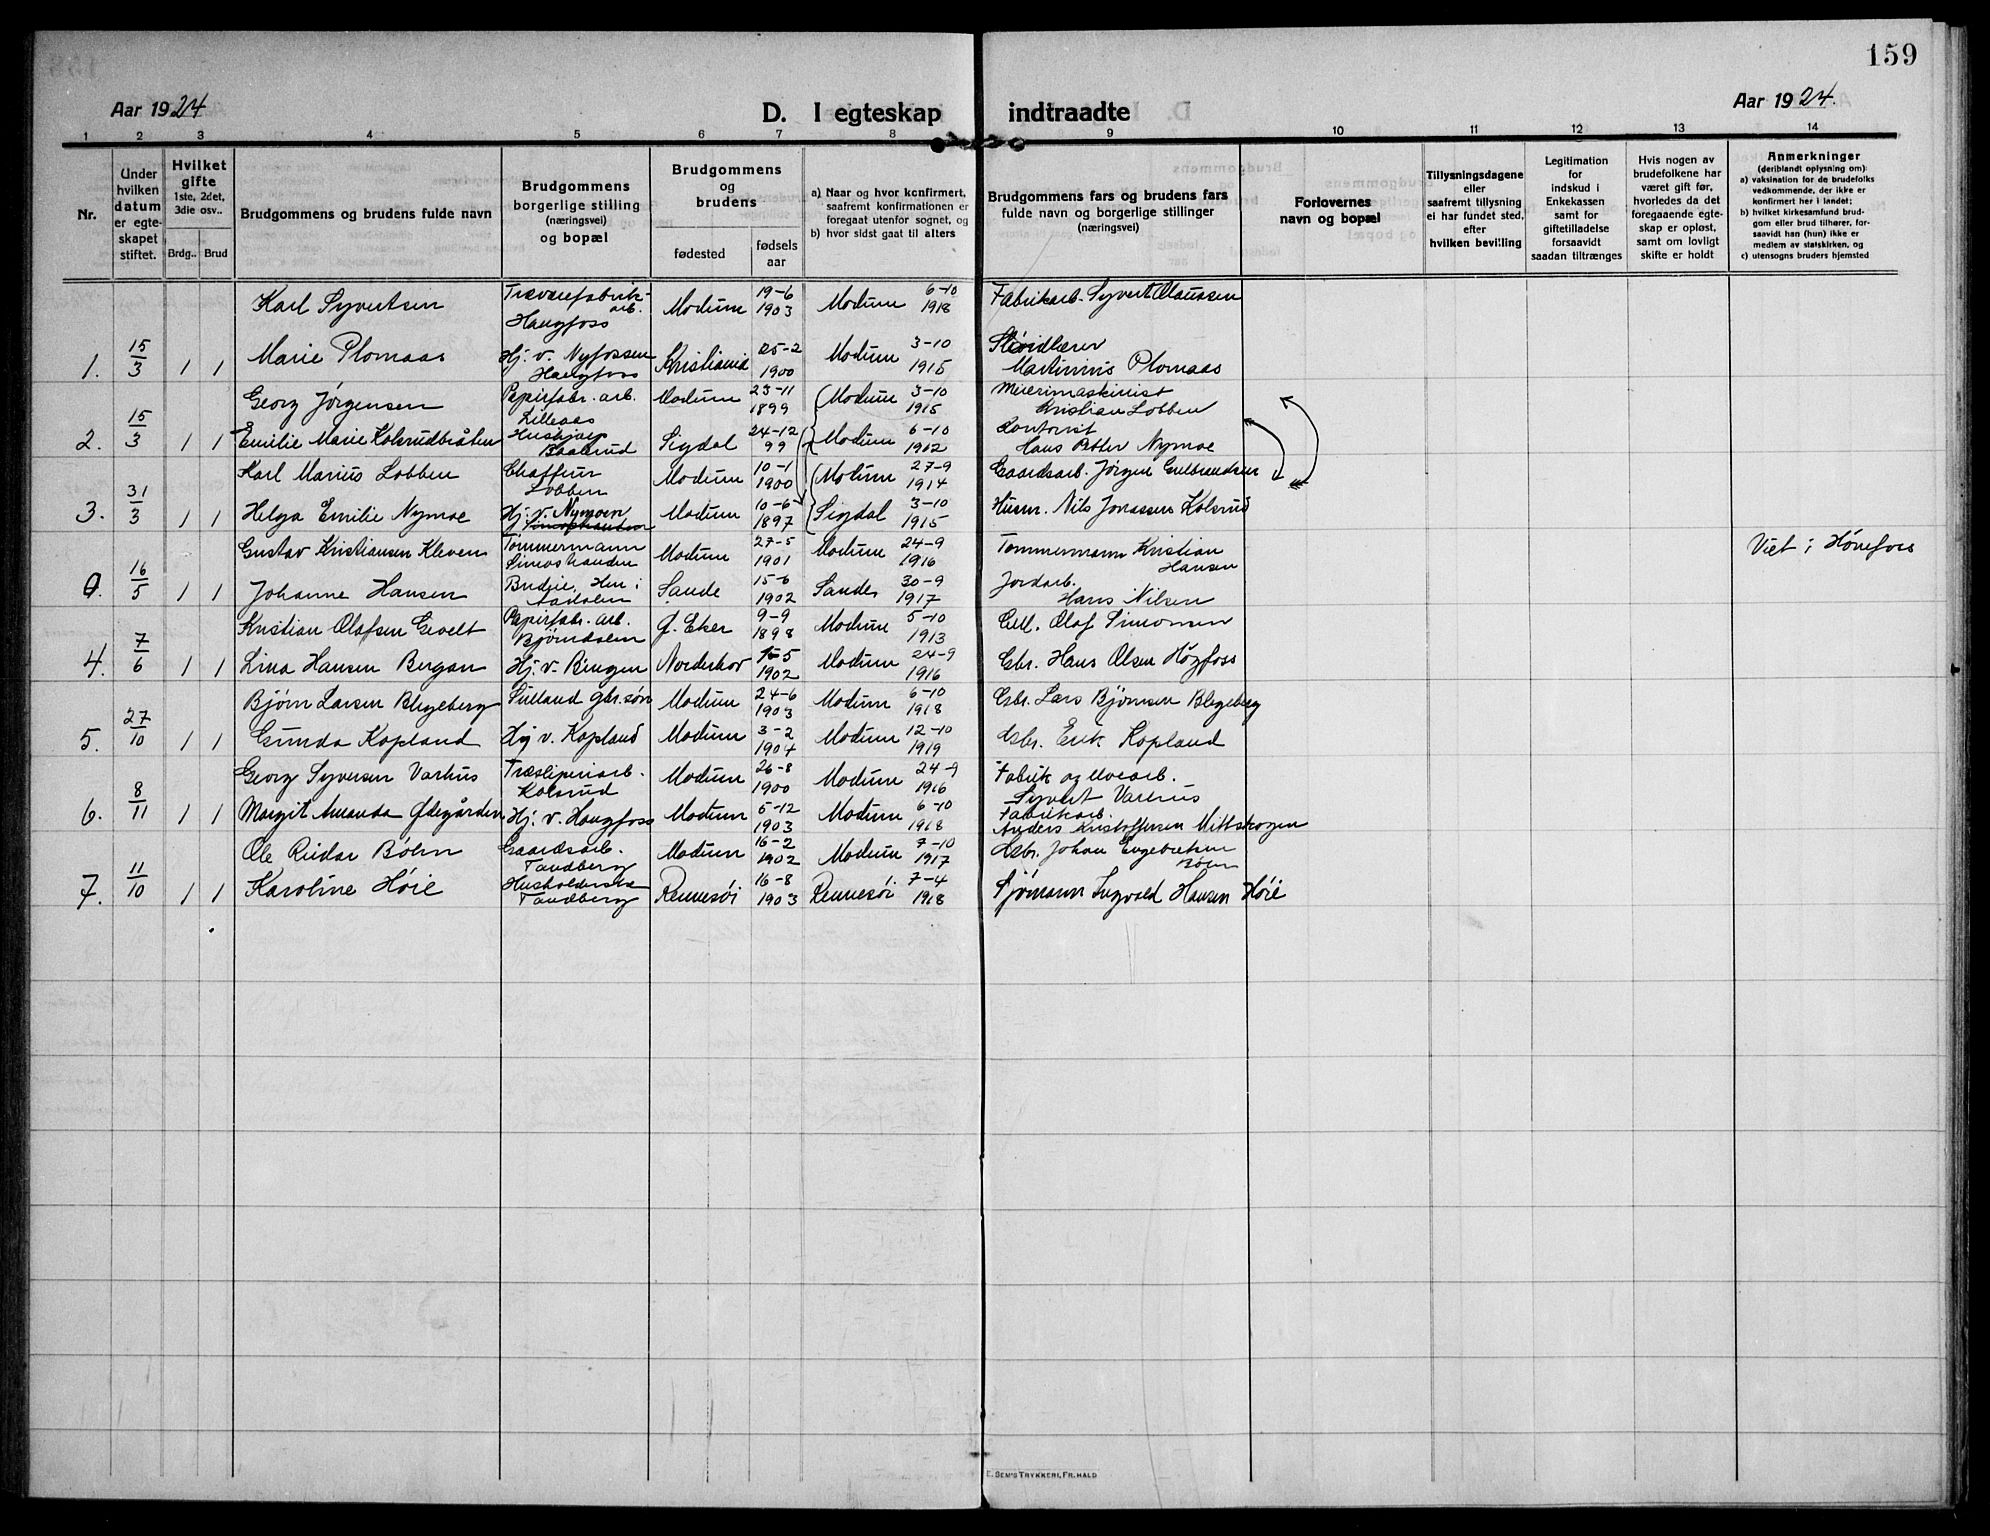 159
Aar 1924
D. I egteskap indtraadte
Aar 1924.
1 2 3 4 5 6 7 8 9 10 11 12 13 14
Nr.
Under
hvilken
datum
er egte-
skapet
stiftet.
Hvilket
gifte
1ste, 2det,
3die osv..
Brdg.. Brud
Brudgommens og brudens fulde navn
Brudgommens
borgerlige stilling
(næringsvei)
og bopæl
Brudgommens
og
brudens
fødested
fødsels
aar
a) Naar og hvor konfirmert,
saafremt konfirmationen er
foregaat utenfor sognet, og
b) hvor sidst gaat til alters
Brudgommens fars og brudens fars
fulde navn og borgerlige stillinger
(næringsvei)
Forlovernes
navn og bopæl
Tillysningsdagene
eller
saafremt tillysning
ei har fundet sted,
efter
hvilken bevilling
Legitimation
for
indskud i
Enkekassen
samt for
giftetilladelse
forsaavidt
saadan tiltrænges
Hvis nogen av
brudefolkene har
været gift før,
hvorledes da det
foregaaende egte-
skap er opløst,
samt om lovligt
skifte er holdt
Anmerkninger
(deriblandt oplysning om):
a) vaksination for de brudefolks
vedkommende, der ikke er
konfirmert her i landet;
b) hvilket kirkesamfund brud-
gom eller brud tilhører, for-
saavidt han (hun) ikke er
medlem av statskirken, og
c) utensogns bruders hjemsted
Karl Syvertsen Trævarefabrik-arb. Haugfoss Modum 19-6 1903 Modum 6-10 1918 Fabrikarb. Syvert Olaussen
1. 15/3 1 1 Marie Plomaas Hj. v. Nyfossen Haugfoss Kristiania 25-2 1900 Modum 3-10 1915 Martinius Plomaas
Georg Jørgensen Papirfabr. arb. Lilleaas Modum 23-11 1899 Modum 3-10 1915 Meierimaskinist Kristian Lobben
2. 15/3 1 1 Emilie Marie Kolsrudbråten Hushjælp Baalsrud Sigdal 24-12 99 Modum 6-10 1912 Kontorist Hans Petter Nymoe
Karl Marius Lobben Chaffeur Lobben Modum 10-1 1900 Modum 27-9 1914 Gaardsarb. Jørgen Gulbrandsen
3. 31/3 1 1 Helga Emilie Nymoe Hj. v. Nymoen Modum 10-6 1897 Sigdal 3-10 1915 Husm. Nils Jonassen Kolsrud
Gustav Kristiansen Kleven Tømmermann Simostranden Modum 27-5 1901 Modum 24-9 1916 Tømmermann Kristian Hansen Viet i Hønefoss
0. 16/5 1 1 Johanne Hansen Budeie, Hen i Aadalen Sande 15-6 1902 Sande 30-9 1917 Jordarb. Hans Nilsen
Kristian Olafsen Gevelt Papirfabr. arb. Bjørndalen Ø. Eker 9-9 1898 Modum 5-10 1913 Olaf Simonsen
4. 7/6 1 1 Lina Hansen Bergan Hj. v. Bingen Norderhov 15-5 1902 Modum 24-9 1916 Gbr. Hans Olsen Høgfoss
Bjørn Larsen Blegeberg Sulland gbr. søn Modum 24-6 1903 Modum 6-10 1918 Gbr. Lars Bjørnsen Blegeberg
5. 27/10 1 1 Gunda Kopland Hj v. Kopland Modum 3-2 1904 Modum 12-10 1919 Gbr. Erik Kopland
Georg Syversen Varhus Træsliperiarb. Kolsrud Modum 26-8 1900 Modum 24-9 1916 Fabrik og elvearb. Syvert Varhus
6. 8/11 1 1 Margit Amanda Ødegården Hj. v. Haugfoss Modum 5-12 1903 Modum 6-10 1918 Fabrikarb. Anders Kristoffersen Mittskogen
Ole Reidar Bøhn Gaardsarb. Tandberg Modum 16-2 1902 Modum 7-10 1917 Gbr. Johan Engebretsen Bøhn
7. 11/10 1 1 Karoline Høie Husholderske Tandberg Rennesøi 16-8 1903 Rennesøi 7-4 1918 Sjømann Ingvald Hansen Høie
E. SEM'S TRYKKERI, FR.HALD